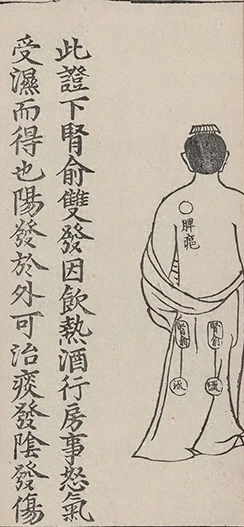 此證下腎俞雙發因飲熱酒行房事怒氣
受濕而得也陽發於外可治痰發陰發傷
脾癌
腎俞
腎俞